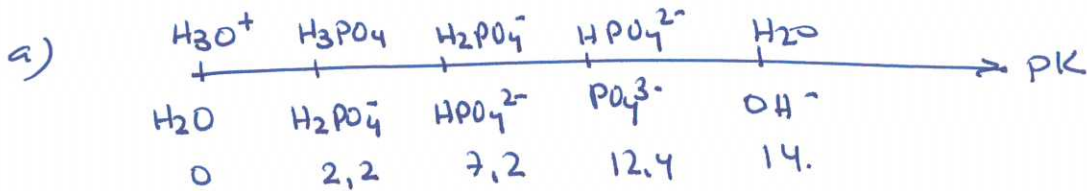 a) H3O+ H3PO4 H2PO4- HPO4 2- H2O
PK
H2O H2PO4- HPO4 2- PO4 3- OH-
0 2,2 7,2 12,4 14.